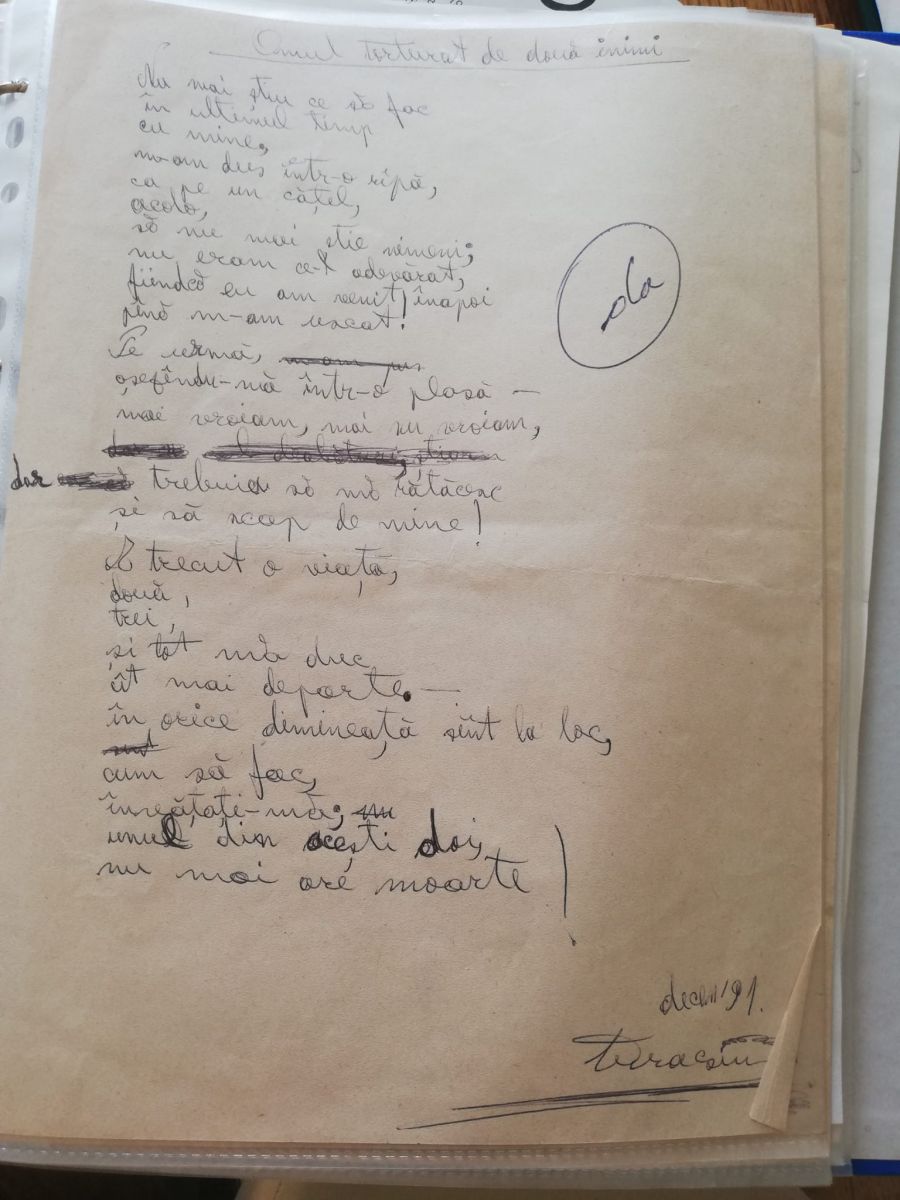 Omul torturat de două inimi
Nu mai știu ce să fac
în ultimul timp
cu mine,
m-am dus într-o rîpă,
ca pe un cățel,
acolo,
să nu mai știe nimeni;
nu eram cel adevărat,
fiindcă eu am venit înapoi
pînă m-am uscat!
da
Pe urmă, m-am pus
într-o plasă —
mai vroiam, mai nu vroiam,
dar trebuia să mă rătăcesc
și să scap de mine!
A trecut o viață,
două,
trei,
și tot mă duc
cît mai departe. —
în orice dimineață sînt la loc,
sunt
cum să fac,
învățați-mă; nu
unul din acești doi,
nu mai are moarte!
decem '91.